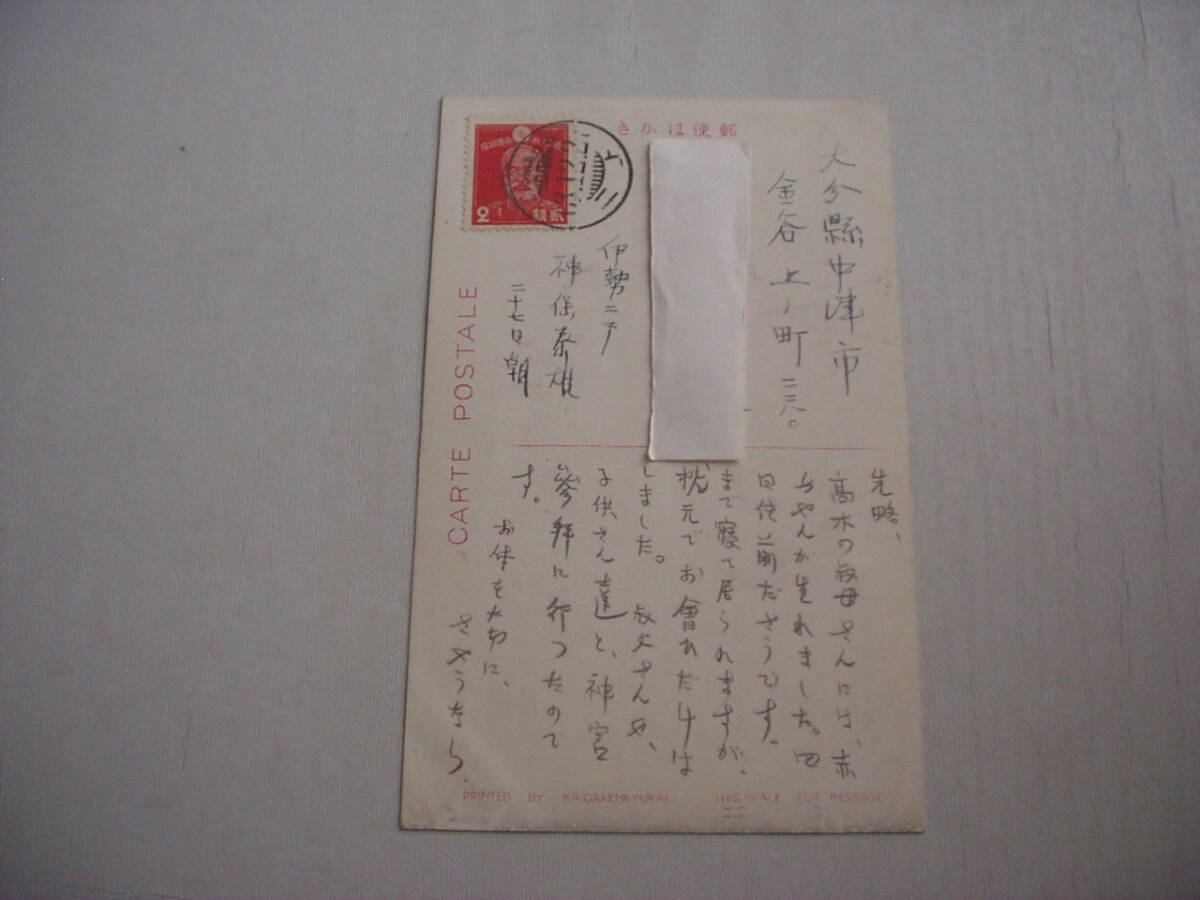 郵便はかき
大分縣中津市
金谷上ノ町二六。
伊勢ニテ
神保泰雄
二十七日朝
先略、
高木の叔母さんには、赤
ちやんが生れました。四
日位前ださうです。
まで寝て居られますが、
枕元でお會ひだけは
しました。 叔父さんや、
子供さん達と、神宮
參拜に行つたので
す。
お体を大切に、
さやうなら、
CARTE POSTALE
2 貳錢
PRINTED BY KAIGAKENKYUKAI
THIS SPACE FOR MESSAGE